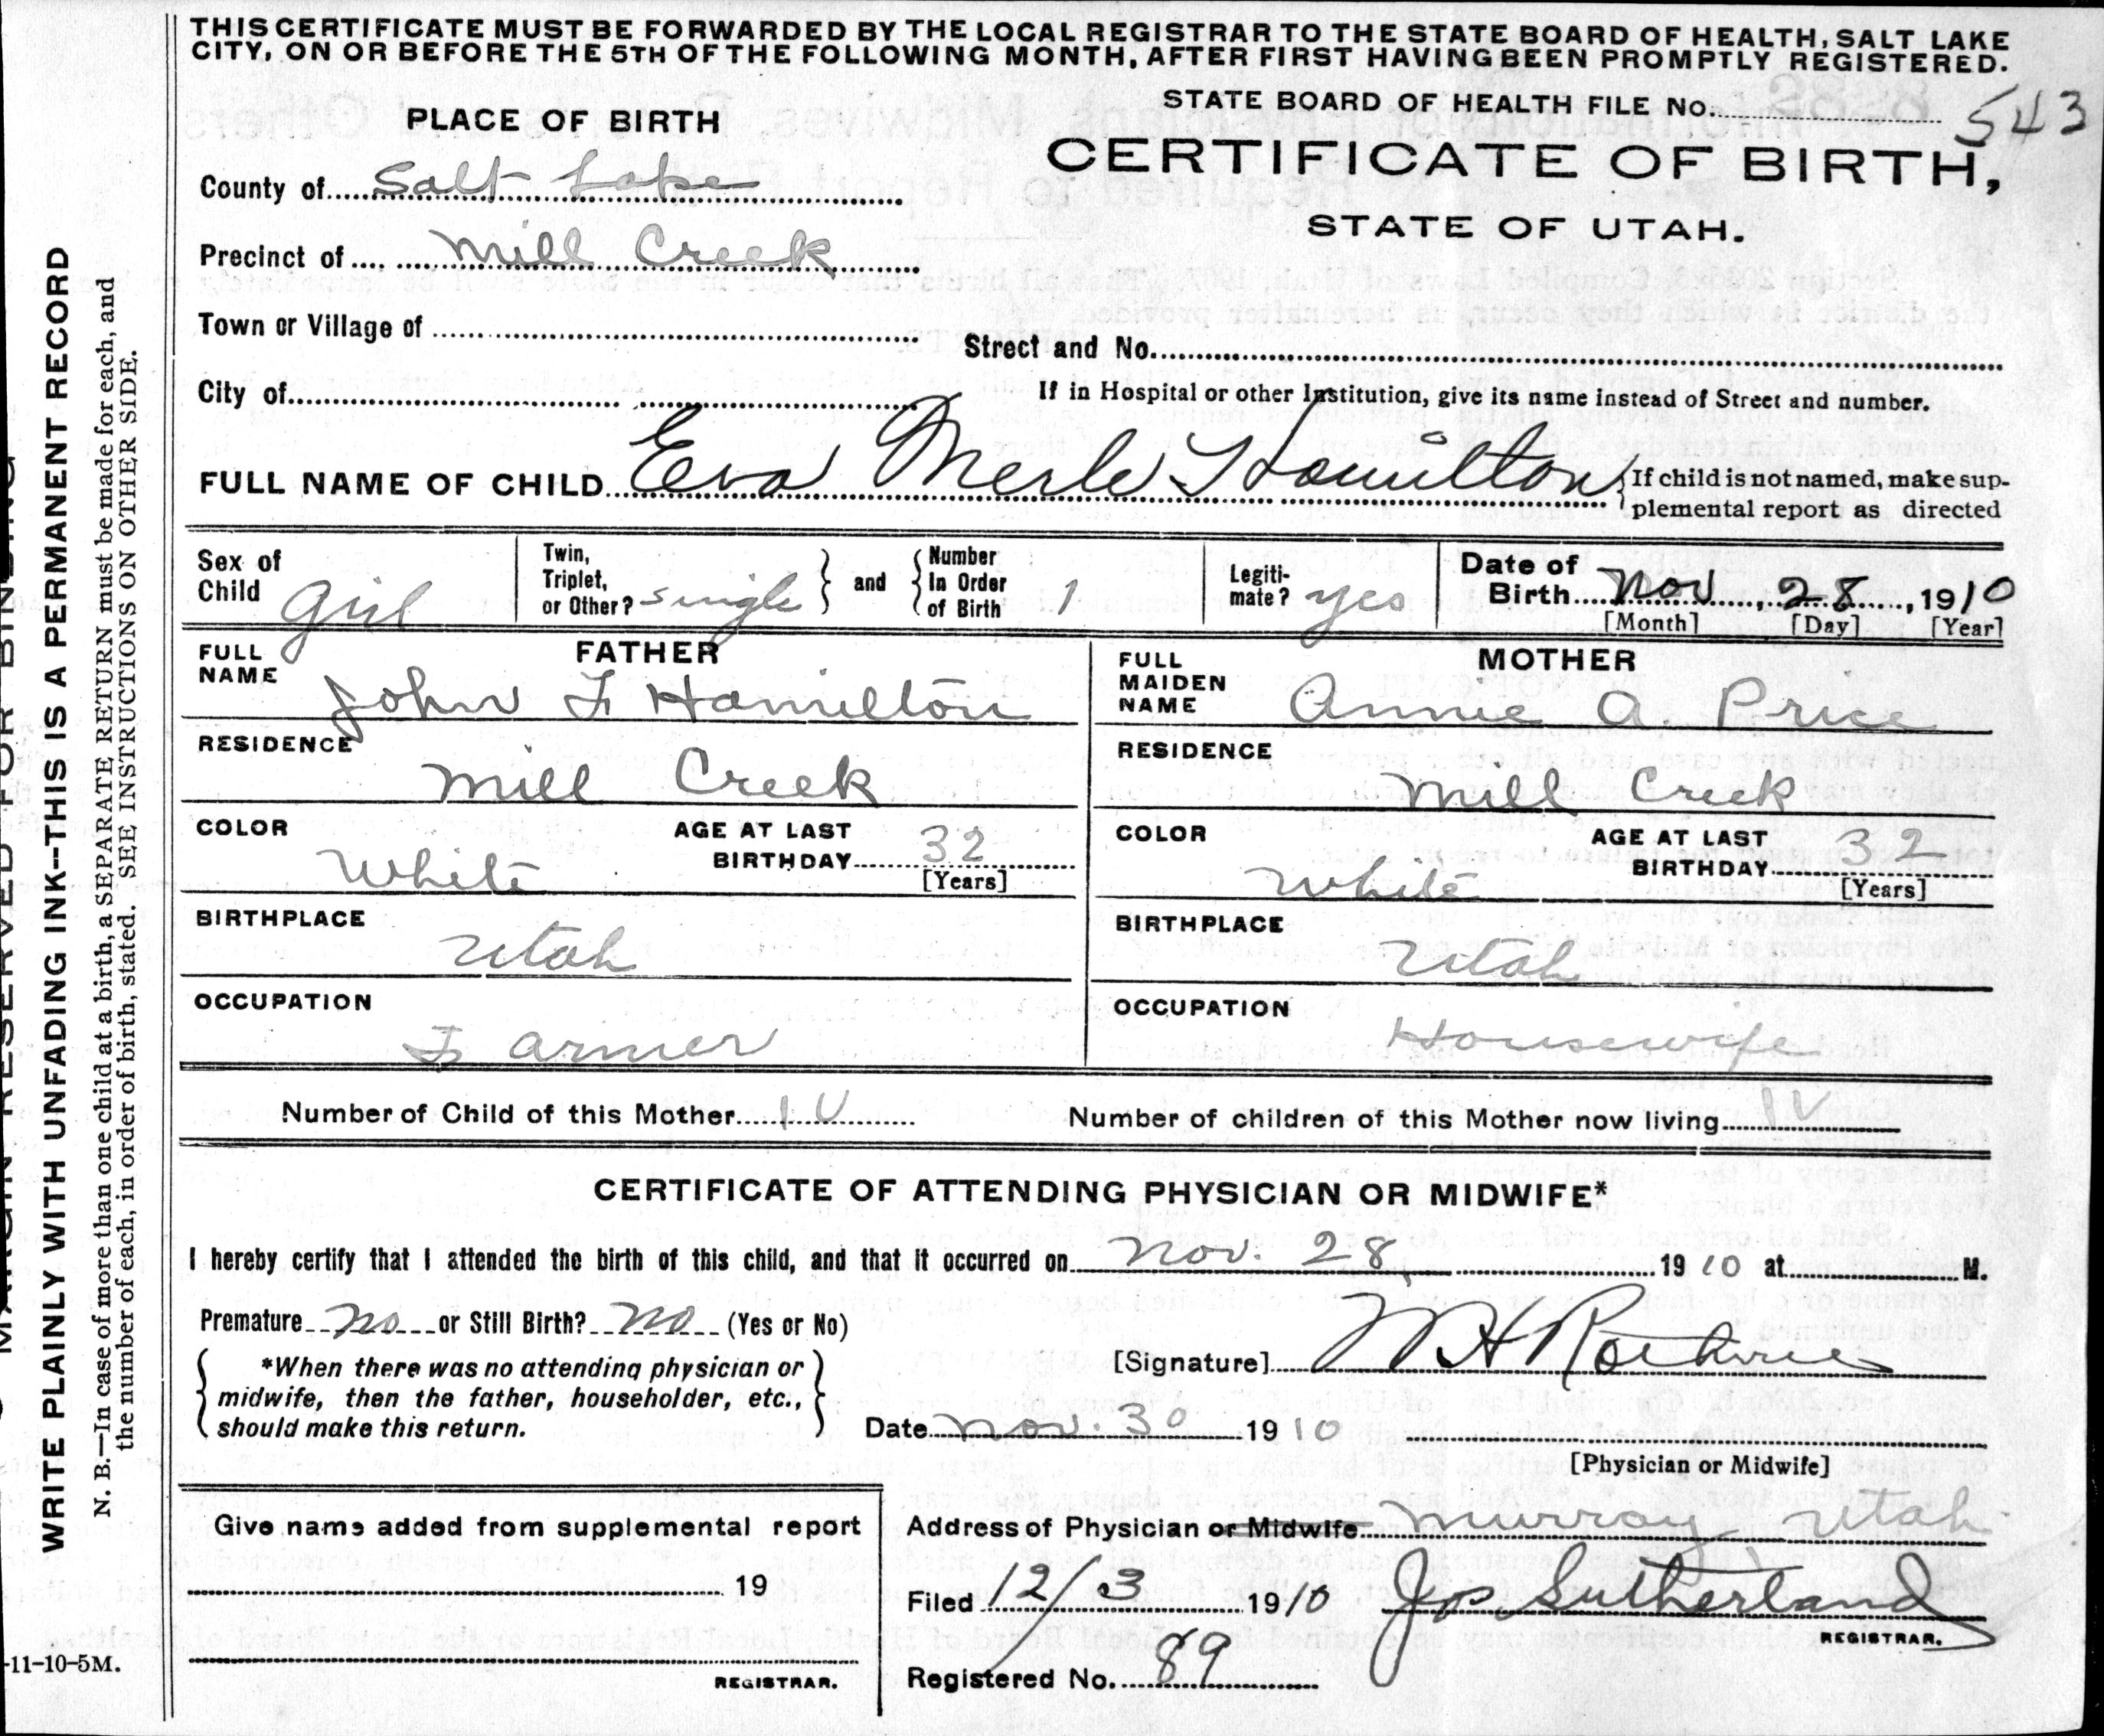 THIS CERTIFICATE MUST BE FORWARDED BY THE LOCAL REGISTRAR TO THE STATE BOARD OF HEALTH, SALT LAKE
CITY, ON OR BEFORE THE 5TH OF THE FOLLOWING MONTH, AFTER FIRST HAVING BEEN PROMPTLY REGISTERED.
STATE BOARD OF HEALTH FILE No. 543
PLACE OF BIRTH
CERTIFICATE OF BIRTH,
STATE OF UTAH.
County of Salt Lake
Precinct of Mill Creek
Town or Village of
Street and No.
City of
If in Hospital or other Institution, give its name instead of Street and number.
FULL NAME OF CHILD Eva Merle Hamilton
If child is not named, make sup-
plemental report as directed
Sex of
Child Girl
Twin,
Triplet,
or Other? single
and
Number
In Order
of Birth 1
Legiti-
mate? yes
Date of
Birth Nov, 28, 1910
[Month] [Day] [Year]
FATHER
FULL
NAME John F Hamilton
RESIDENCE
Mill Creek
COLOR
White
AGE AT LAST
BIRTHDAY 32
[Years]
BIRTHPLACE
Utah
OCCUPATION
Farmer
MOTHER
FULL
MAIDEN
NAME Annie A. Price
RESIDENCE
Mill Creek
COLOR
White
AGE AT LAST
BIRTHDAY 32
[Years]
BIRTHPLACE
Utah
OCCUPATION
Housewife
Number of Child of this Mother IV
Number of children of this Mother now living IV
CERTIFICATE OF ATTENDING PHYSICIAN OR MIDWIFE*
I hereby certify that I attended the birth of this child, and that it occurred on Nov. 28, 1910 at M.
Premature No or Still Birth? No (Yes or No)
*When there was no attending physician or
midwife, then the father, householder, etc.,
should make this return.
[Signature]
Date Nov. 30 1910
[Physician or Midwife]
Give name added from supplemental report
19
REGISTRAR.
Address of Physician or Midwife Murray Utah
Filed 12/3 1910 Jos Sutherland
REGISTRAR.
Registered No. 89
MARGIN RESERVED FOR BINDING
WRITE PLAINLY WITH UNFADING INK--THIS IS A PERMANENT RECORD
N. B.—In case of more than one child at a birth, a SEPARATE RETURN must be made for each, and
the number of each, in order of birth, stated. SEE INSTRUCTIONS ON OTHER SIDE.
-11-10-5M.